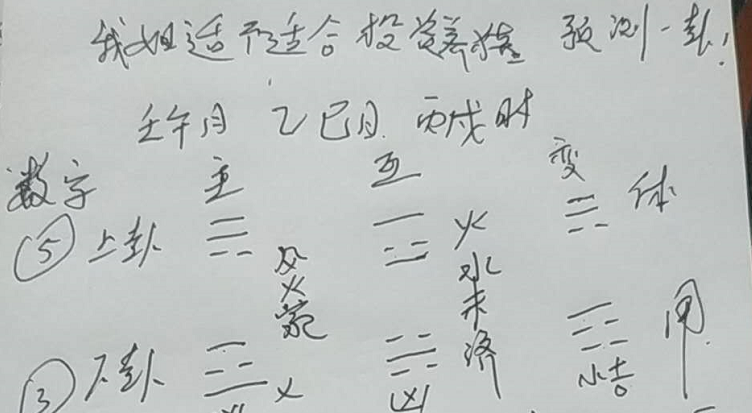 我姐适不适合投资养猪 预测一卦!
壬午月 乙巳日 丙戌时
数字 主 互 变
⑤ 上卦 风火家 火水未济 体
③ 下卦 火 凶 小吉 用